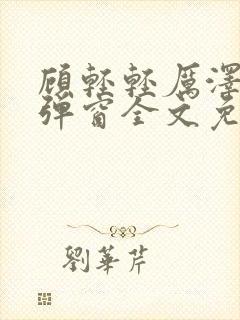 顾轻轻厉泽
弹窗全文免
劉華芹